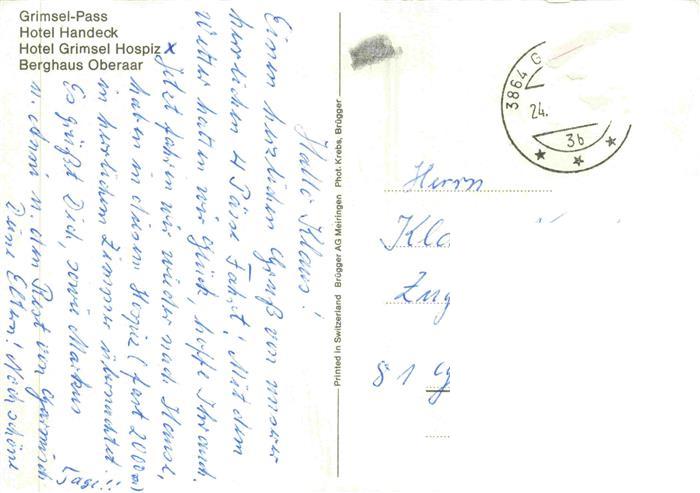 Grimsel-Pass
Hotel Handeck
Hotel Grimsel Hospiz x
Berghaus Oberaar
Hallo Klaus!
Einen herzlichen Gruß von unserer
herrlichen 4 Pässe Fahrt! Mit dem
Wetter hatten wir Glück, hoffe Ihr auch.
Jetzt fahren wir wieder nach Hause,
haben in diesem Hospiz (fast 2000 m)
in herrlichen Zimmer übernachtet.
Es grüßt Dich, sowie Markus
u. u. dem Rest von
Deine Eltern! Noch schöne
Tage!!
Printed in Switzerland Brügger AG Meiringen Phot. Krebs, Brügger
3864 G
24.
3b
Herrn
Kla
Zug
81